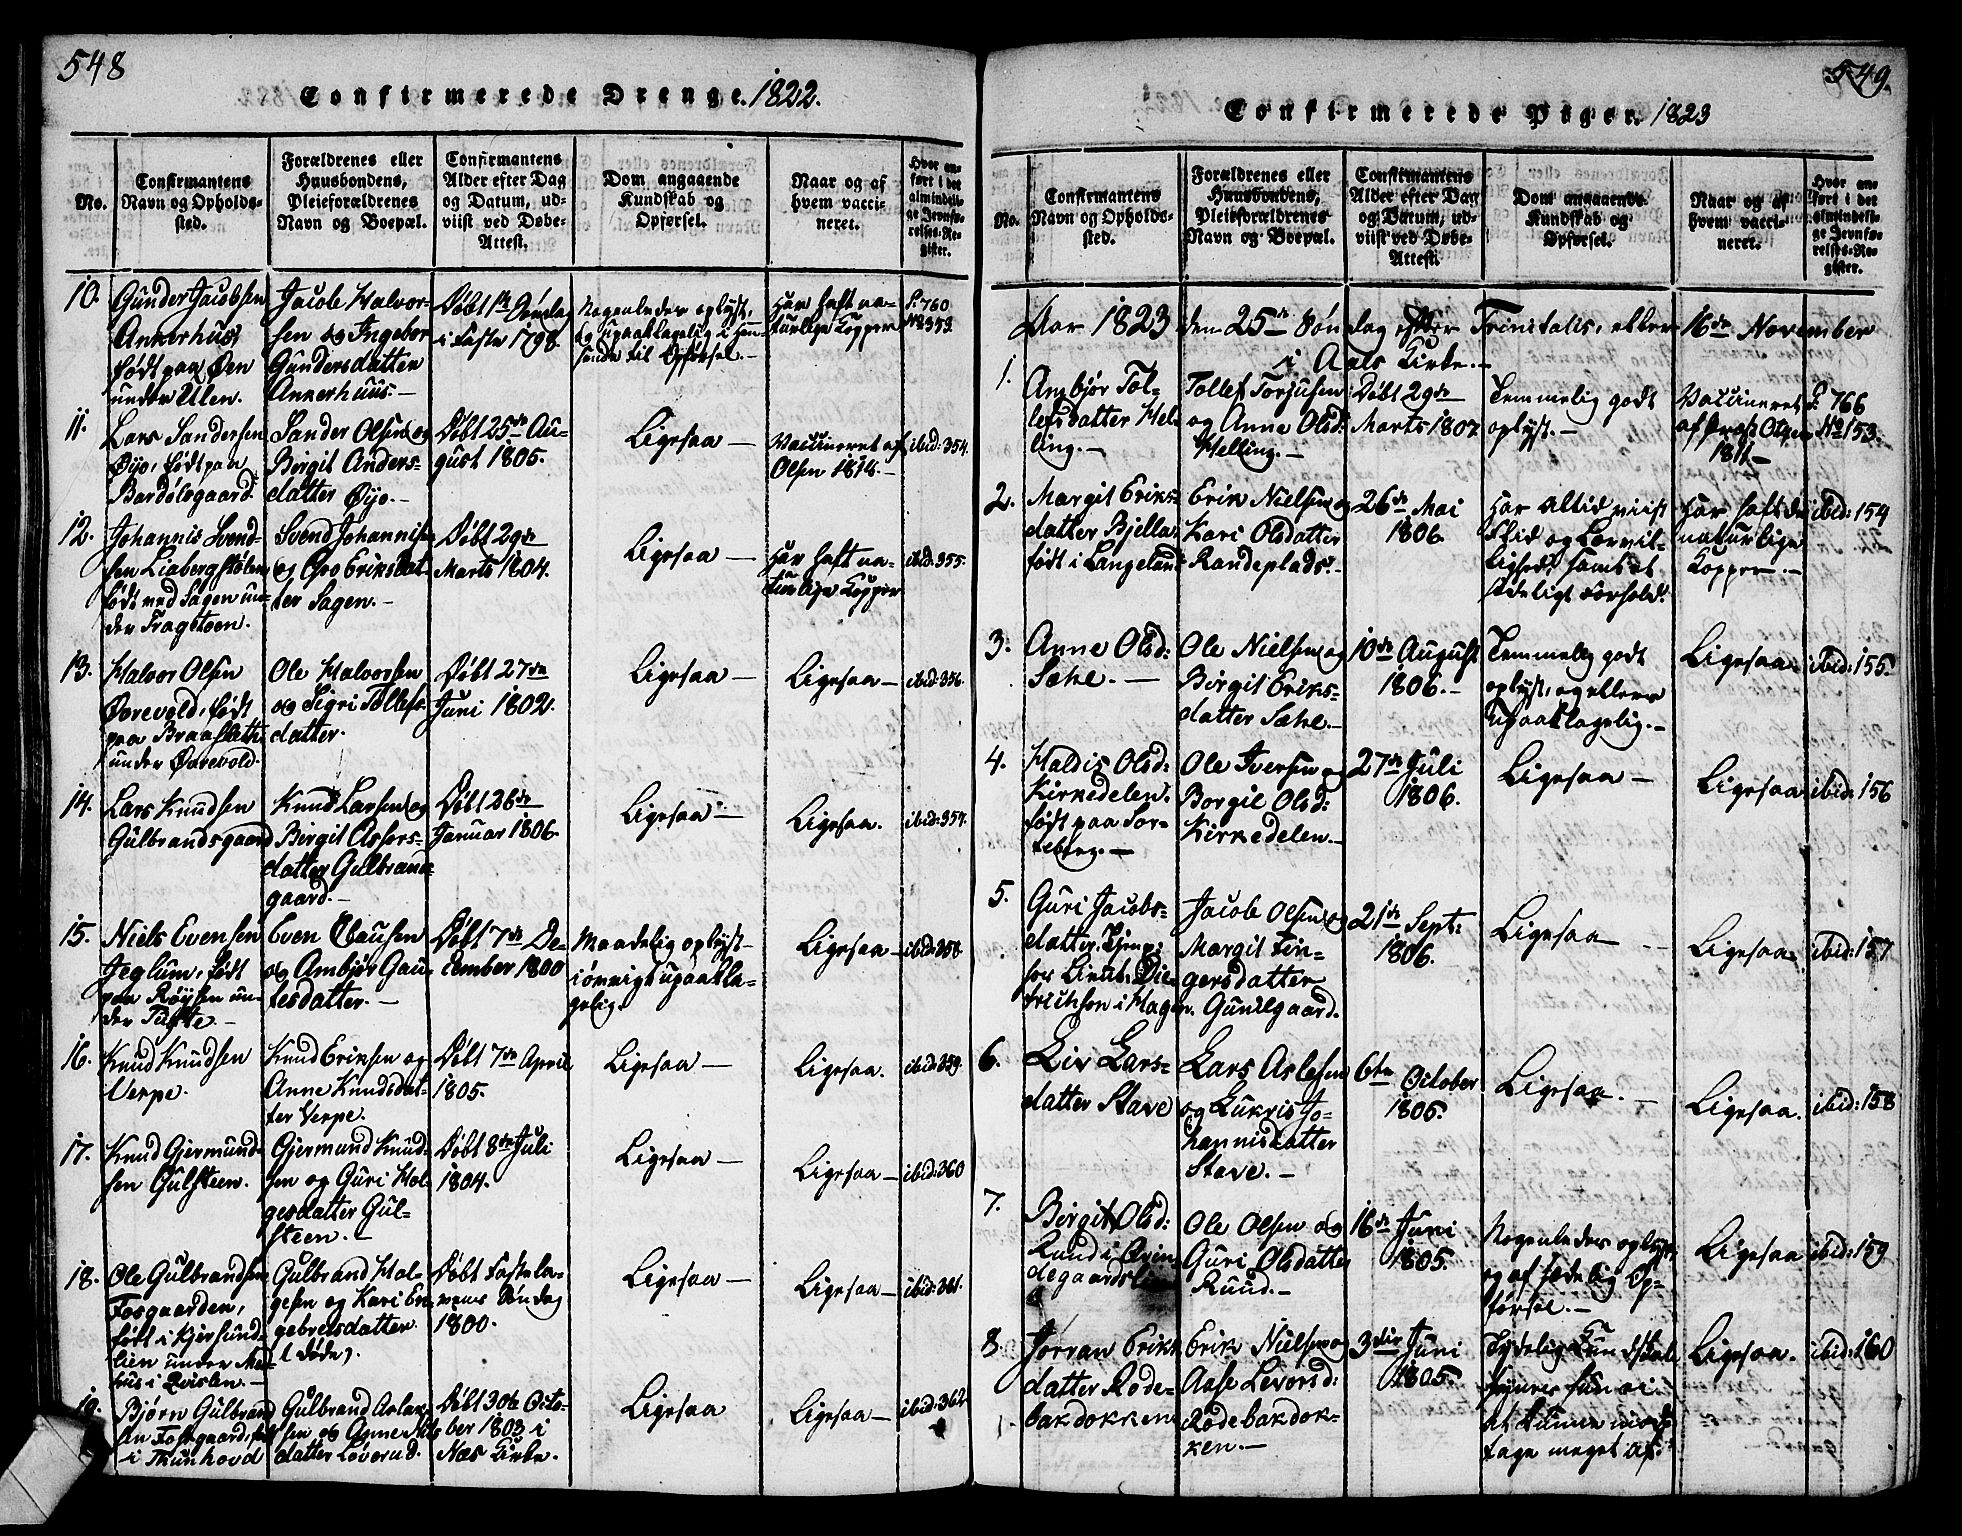 548
Confirmerede Drenge. 1822.
No.
Confirmantens
Navn og Opholds-
sted.
Forældrenes eller
Huusbondens,
Pleieforældrenes
Navn og Boepæl.
Confirmantens
Alder efter Dag
og Datum, ud-
viist ved Døbe-
Attest.
Dom angaaende
Kundskab og
Opførsel.
Naar og af
hvem vacci-
neret.
Hvor an-
ført i det
almindeli-
ge Jevnfø-
relses-Re-
gister.
10.
Gunder Jacobsen
Ankerhus
født paa Øen
under Ulen.
Jacob Halvor-
sen og Ingebor
Gundersdatter
Ankerhuus.-
Døbt 1ste Søndag
i Faste 1798.
Nogenledes oplyst,
og upaaklagelig i Hen-
seende til Opførsel.-
Har haft na-
turlige Kopper
P. 760
No 353.
11.
Lars Sandersen
Øijo, født paa
Bardølsgaard
Sander Olsen og
Birgit Anders-
datter Øijo.-
Døbt 25de Au-
gust 1805.
Ligesaa -
Vaccineret af
Olsen 1814.-
ibid: 354.
12.
Johannis Svend-
sen Liabergstølen
født ved Sagen un-
der Fragstoen.
Svend Johannis
og Gro Eriksdat-
ter Sagen.-
Døbt 29de
Marts 1804.
Ligesaa -
Har haft na-
turlige Kopper
ibid: 355.
13.
Halvor Olsen
Ørevold, født
paa Braaflath
under Ørevold.
Ole Halvorsen
og Sigri Tollefs-
datter.
Døbt 27de
Juni 1802.
Ligesaa -
Ligesaa -
ibid: 356.
14.
Lars Knudsen
Gulbrandsgaard
Knud Larsen og
Birgit Assers-
datter Gulbrands-
gaard.-
Døbt 26de
Januar 1806.
Ligesaa -
Ligesaa.
ibid: 357.
15.
Niels Evensen
Jeglum, født
paa Røysen un-
der Tufte.-
Even Clausen
og Ambjør Gau-
tesdatter.-
Døbt 7de De-
cember 1800
Maadelig oplyst
iøvrigt upaakla-
gelig
Ligesaa -
ibid: 358.
16.
Knud Knudsen
Verpe.
Knud Eriksen og
Anne Knudsdat-
ter Verpe.
Døbt 7de April
1805.
Ligesaa -
Ligesaa.
ibid: 359.
17.
Knud Gjermund-
sen Gulsteen.
Gjermund Knud-
sen og Guri Hol-
gesdatter Gul-
steen.-
Døbt 8de Juli
1804.
Ligesaa -
Ligesaa -
ibid: 360
18.
Ole Gulbrandsen
Fosgaarden,
født i Kjersund-
lien under Mel-
hus i Qvislen.-
Gulbrand Hol-
gesen og Kari En-
gebretsdatter
(døde)
Døbt Fastela-
vens Søndag
1800.
Ligesaa -
Ligesaa -
ibid: 361.
19.
Bjørn Gulbrand
Fosgaard, født
i Thunhovd
Gulbrand Aslak-
sen og Anne Nils-
datter Løverud.
Døbt 30te Octo-
ber 1803 i
Næs Kirke.
Ligesaa
Ligesaa -
ibid: 362
549.
Confirmerede Piger. 1823
No.
Confirmantens
Navn og Opholds-
sted.
Forældrenes eller
Huusbondens,
Pleieforældrenes
Navn og Boepæl.
Confirmantens
Alder efter Dag
og Datum, ud-
viist ved Døbe-
Attest.
Dom angaaende
Kundskab og
Opførsel.
Naar og af
hvem vacci-
neret.
Hvor an-
ført i det
almindeli-
ge Jevnfø-
relses-Re-
gister.
Aar 1823 den 25de Søndag efter Trinitatis, eller 16de November
i Aals Kirke.-
1.
Angbjør Tol-
lefsdatter Hel-
ling.-
Tollef Torjusen
og Anne Olsd:
Helling.-
Døbt 29de
Marts 1807.
Temmelig godt
oplyst.-
Vaccineret
af Præst Olsen
1811-
P. 766
No 153.
2.
Margit Eriks-
datter Bjella
født i Langeland
Erik Nielsen og
Kari Olsdatter
Randeplads.-
26de Mai
1806.
Har altid viist
Flid og Lærvil-
lighed, samt et
sædeligt Forhold.
Har haft de
naturlige
Kopper.-
ibid: 154
3.
Anne Olsd:
Sæhe.-
Ole Nielsen og
Birgit Eriks-
datter Sæhe.-
10de August
1806.-
Temmelig godt
oplyst, og ellers
Upaaklagelig.-
Ligesaa.
ibid: 155.
4.
Haldis Olsd:
Kirkedelen.
født paa Tor-
leberg.-
Ole Iversen og
Borgil Olsd:
Kirkedelen.-
27de Juli
1806.
Ligesaa -
Ligesaa
ibid: 156
5.
Guri Jacobs-
datter. Tjener
hos Lieut: Die-
trichson i Hagen.
Jacob Olsen og
Margit Fin-
gersdatter
Gunilgaard.
21de Sept:
1806.
Ligesaa -
Ligesaa.
ibid: 157
6.
Liv Lars-
datter Stave
Lars Aslesen
og Lukris Jo-
hannisdatter
Stave.-
6te October
1805.
Ligesaa.-
Ligesaa.
ibid: 158
7.
Birgit Olsd:
Ruud i Qvin
degaardslie
Ole Olsen og
Guri Olsdatter
Ruud.-
16de Juni
1805.
Nogenledes oplyst
og af sædelig Op-
førsel.-
Ligesaa
ibid: 159
8
Jørran Eriks
datter Rode-
bakdokken
Erik Nielsen og
Aase Levorsd:
Rodebakdok-
ken.-
3die Juni
1805.
Tydelig Kundskab
synes hun ei
at kunne mod-
tage meget af.
Ligesaa.
ibid: 160